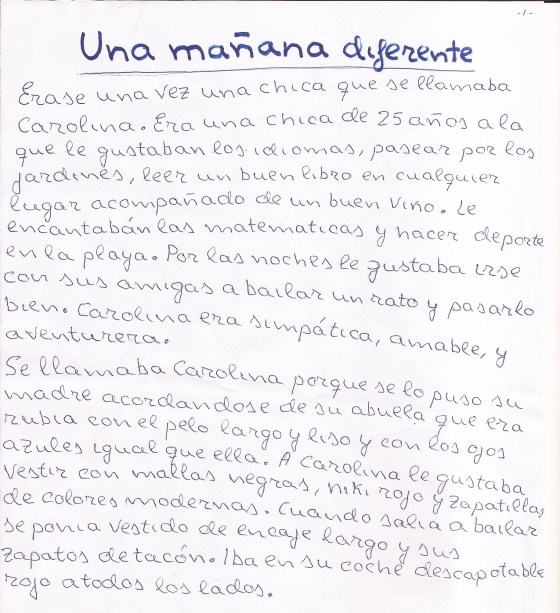 -1-
Una mañana diferente
Erase una vez una chica que se llamaba
Carolina. Era una chica de 25 años a la
que le gustaban los idiomas, pasear por los
jardines, leer un buen libro en cualquier
lugar acompañado de un buen vino. Le
encantabán las matematicas y hacer deporte
en la playa. Por las noches le gustaba irse
con sus amigas a bailar un rato y pasarlo
bien. Carolina era simpática, amable, y
aventurera.
Se llamaba Carolina porque se lo puso su
madre acordandose de su abuela que era
rubia con el pelo largo y liso y con los ojos
azules igual que ella. A Carolina le gustaba
vestir con mallas negras, niki rojo y zapatillas
de colores modernas. Cuando salia a bailar
se ponia vestido de encaje largo y sus
zapatos de tacón. Iba en su coche descapotable
rojo a todos los lados.